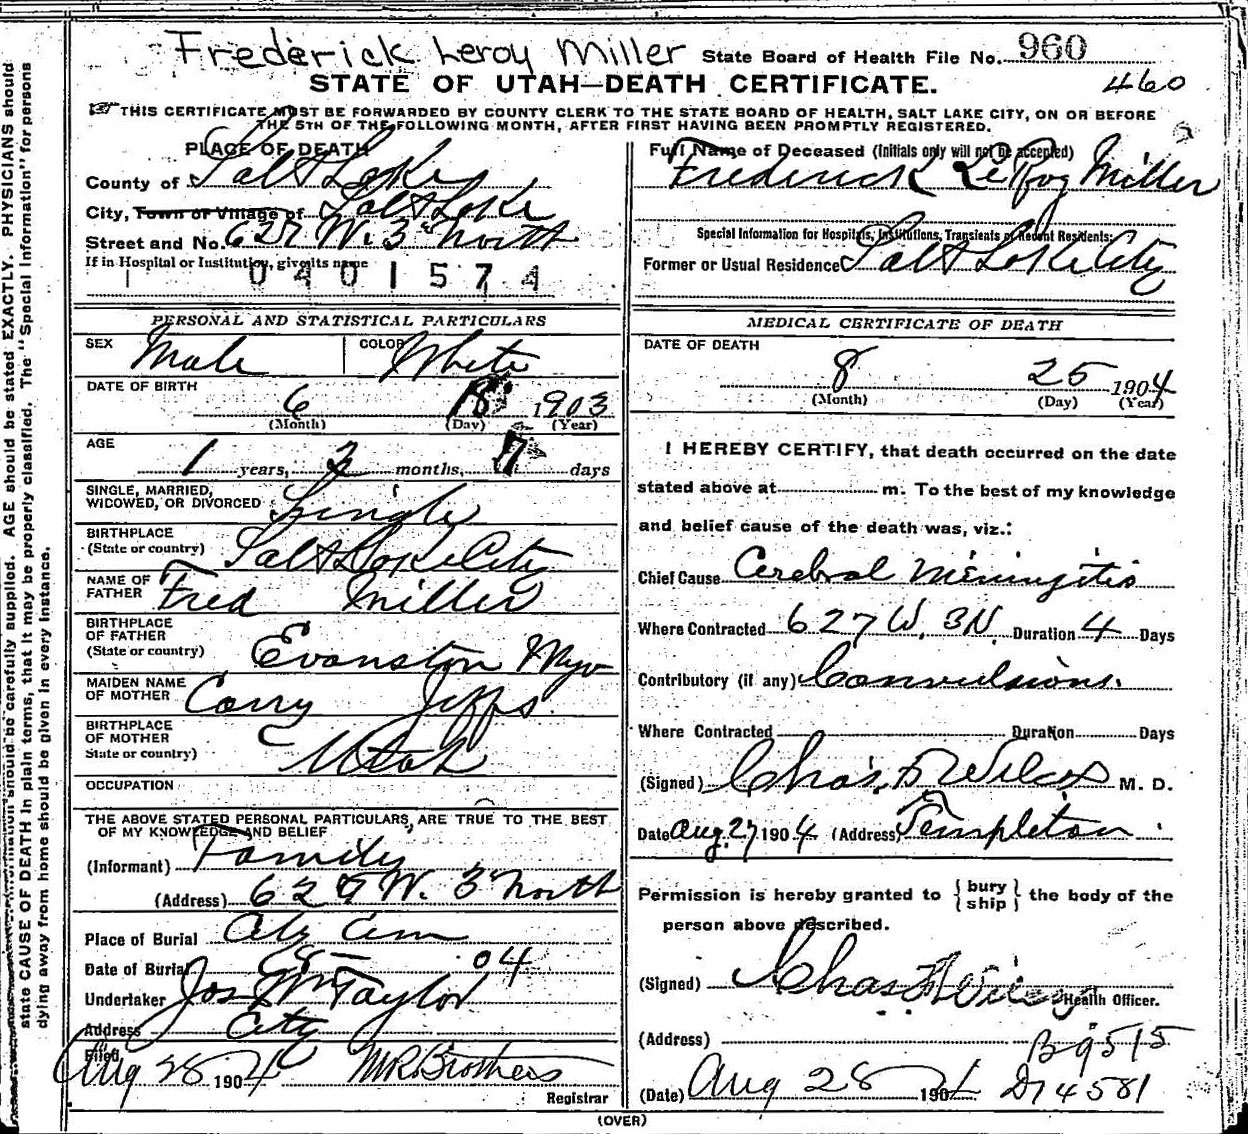 Frederick Leroy Miller State Board of Health File No. 960
STATE OF UTAH—DEATH CERTIFICATE. 460
THIS CERTIFICATE MUST BE FORWARDED BY COUNTY CLERK TO THE STATE BOARD OF HEALTH, SALT LAKE CITY, ON OR BEFORE
THE 5TH OF THE FOLLOWING MONTH, AFTER FIRST HAVING BEEN PROMPTLY REGISTERED.
state CAUSE OF DEATH in plain terms, that it may be properly classified. The "Special Information" for persons
dying away from home should be given in every instance.
information should be carefully supplied. AGE should be stated EXACTLY. PHYSICIANS should
PLACE OF DEATH
County of Salt Lake
City, Town or Village of Salt Lake
Street and No. 627 W. 3d North
If in Hospital or Institution, give its name
0401574
PERSONAL AND STATISTICAL PARTICULARS
SEX Male COLOR White
DATE OF BIRTH
6 18 1903
(Month) (Day) (Year)
AGE
1 years, 2 months, 7 days
SINGLE, MARRIED,
WIDOWED, OR DIVORCED Single
BIRTHPLACE
(State or country) Salt Lake City
NAME OF
FATHER Fred Miller
BIRTHPLACE
OF FATHER
(State or country) Evanston Wyo
MAIDEN NAME
OF MOTHER Carry Jepps
BIRTHPLACE
OF MOTHER
State or country) Utah
OCCUPATION
THE ABOVE STATED PERSONAL PARTICULARS, ARE TRUE TO THE BEST
OF MY KNOWLEDGE AND BELIEF
(Informant) Family
(Address) 627 W. 3d North
Place of Burial City Cem
Date of Burial 04
Undertaker Jos Wm Taylor
Address City
Filed
Aug 28 1904 M R Brothers
Registrar
Full Name of Deceased (Initials only will not be accepted)
Frederick LeRoy Miller
Special Information for Hospitals, Institutions, Transients or Recent Residents:
Former or Usual Residence Salt Lake City
MEDICAL CERTIFICATE OF DEATH
DATE OF DEATH
8 25 1904
(Month) (Day) (Year)
I HEREBY CERTIFY, that death occurred on the date
stated above at m. To the best of my knowledge
and belief cause of the death was, viz.:
Chief Cause Cerebral Meningitis
Where Contracted 627 W. 3N. Duration 4 Days
Contributory (if any) Convulsions.
Where Contracted Duration Days
(Signed) Chas. F. Wilcox M. D.
Date Aug. 27 1904 (Address) Templeton
Permission is hereby granted to {bury ship} the body of the
person above described.
(Signed) Chas. Health Officer.
(Address) B 9515
(Date) Aug 28 1904 D 4581
(OVER)